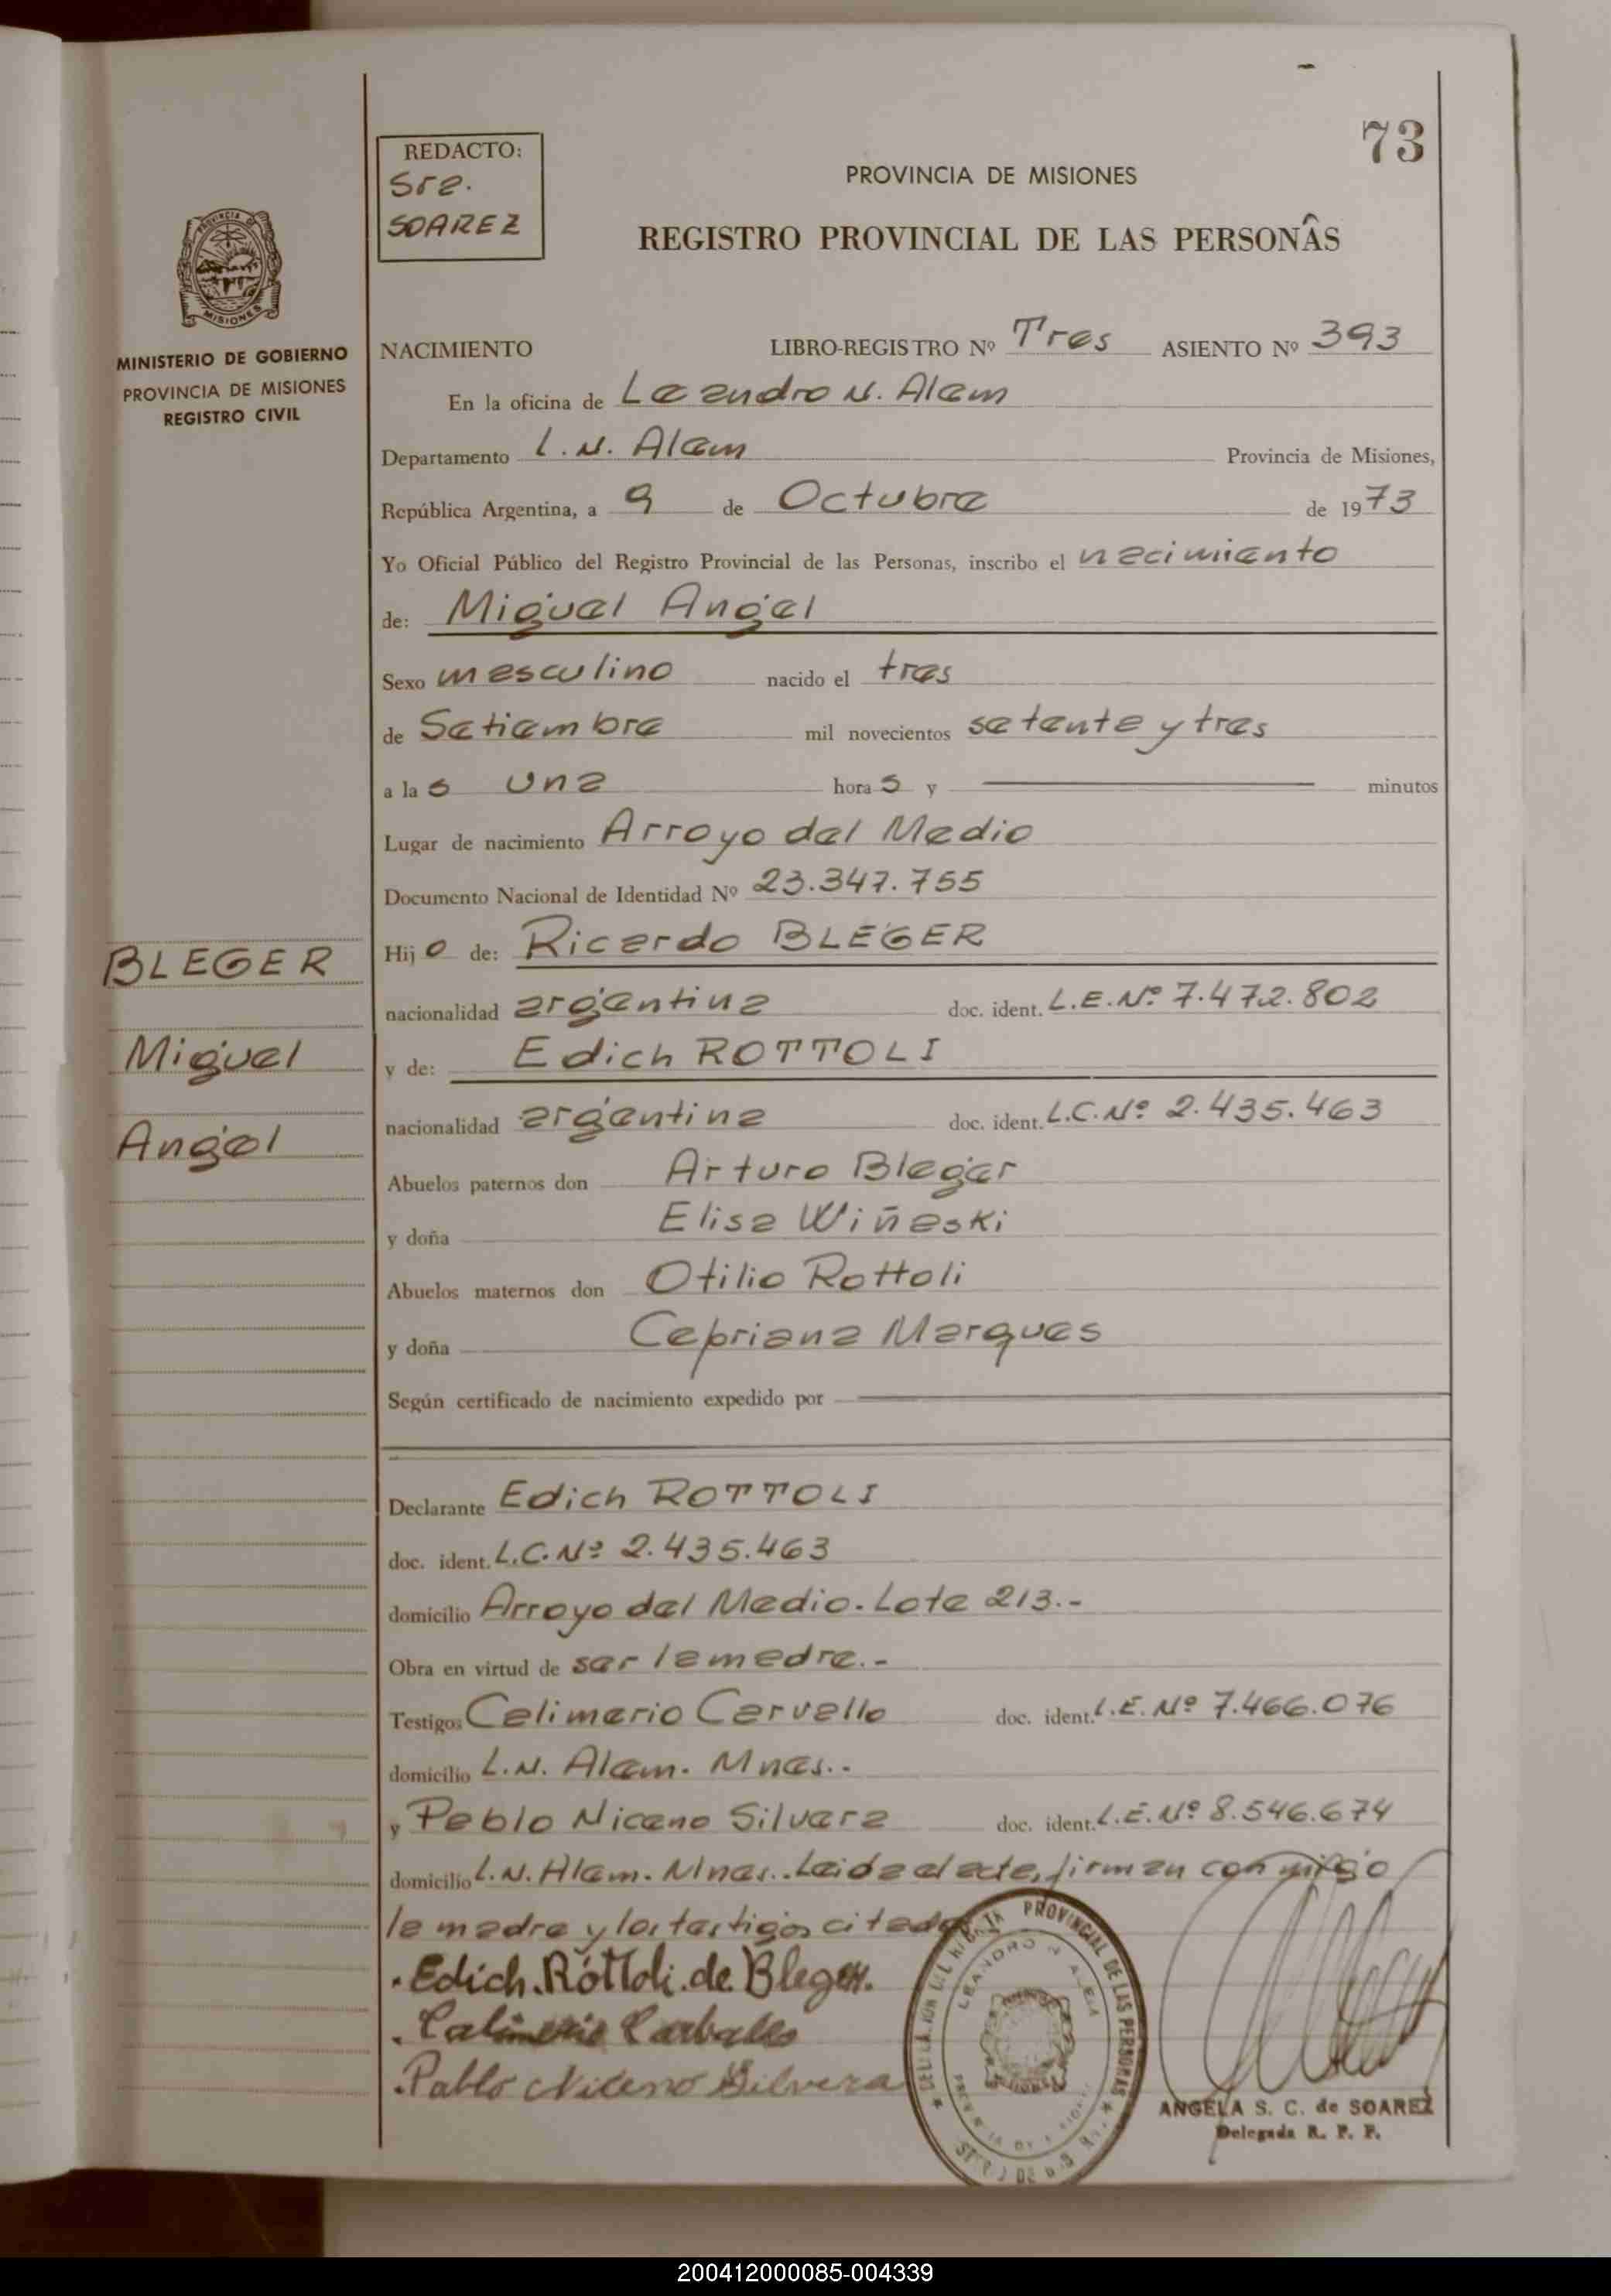 73
REDACTO:
Sra.
SOAREZ
PROVINCIA DE MISIONES
REGISTRO PROVINCIAL DE LAS PERSONAS
PROVINCIA DE
MISIONES
MINISTERIO DE GOBIERNO
PROVINCIA DE MISIONES
REGISTRO CIVIL
NACIMIENTO LIBRO-REGISTRO Nº Tres ASIENTO Nº 393
En la oficina de Leandro N. Alem
Departamento L.N. Alem Provincia de Misiones,
República Argentina, a 9 de Octubre de 1973
Yo Oficial Público del Registro Provincial de las Personas, inscribo el nacimiento
de: Miguel Angel
Sexo masculino nacido el tres
de Setiembre mil novecientos setenta y tres
a las una horas y minutos
Lugar de nacimiento Arroyo del Medio
Documento Nacional de Identidad Nº 23.347.755
BLEGER
Miguel
Angel
Hijo de: Ricardo BLEGER
nacionalidad argentina doc. ident. L.E.Nº 7.472.802
y de: Edich ROTTOLI
nacionalidad argentina doc. ident. L.C.Nº 2.435.463
Abuelos paternos don Arturo Bleger
y doña Elisa Wiñeski
Abuelos maternos don Otilio Rottoli
y doña Cepriana Marques
Según certificado de nacimiento expedido por
Declarante Edich ROTTOLI
doc. ident. L.C.Nº 2.435.463
domicilio Arroyo del Medio.Lote 213.-
Obra en virtud de ser la madre.-
Testigos Celimerio Carvallo doc. ident. L.E.Nº 7.466.076
domicilio L.N. Alem. Mnes..
y Pablo Niceno Silvera doc. ident. L.E.Nº 8.546.674
domicilio L.N. Alem. Mnes..Leida el acta, firman conmigo
la madre y los testigos citados
.Edich.Róttoli.de.Bleger.
. Carballo
.Pablo Niceno Silvera
PROVINCIAL DE LAS PERSONAS
LEANDRO N ALEM
ANGELA S. C. de SOAREZ
Delegada R. P. P.
200412000085-004339